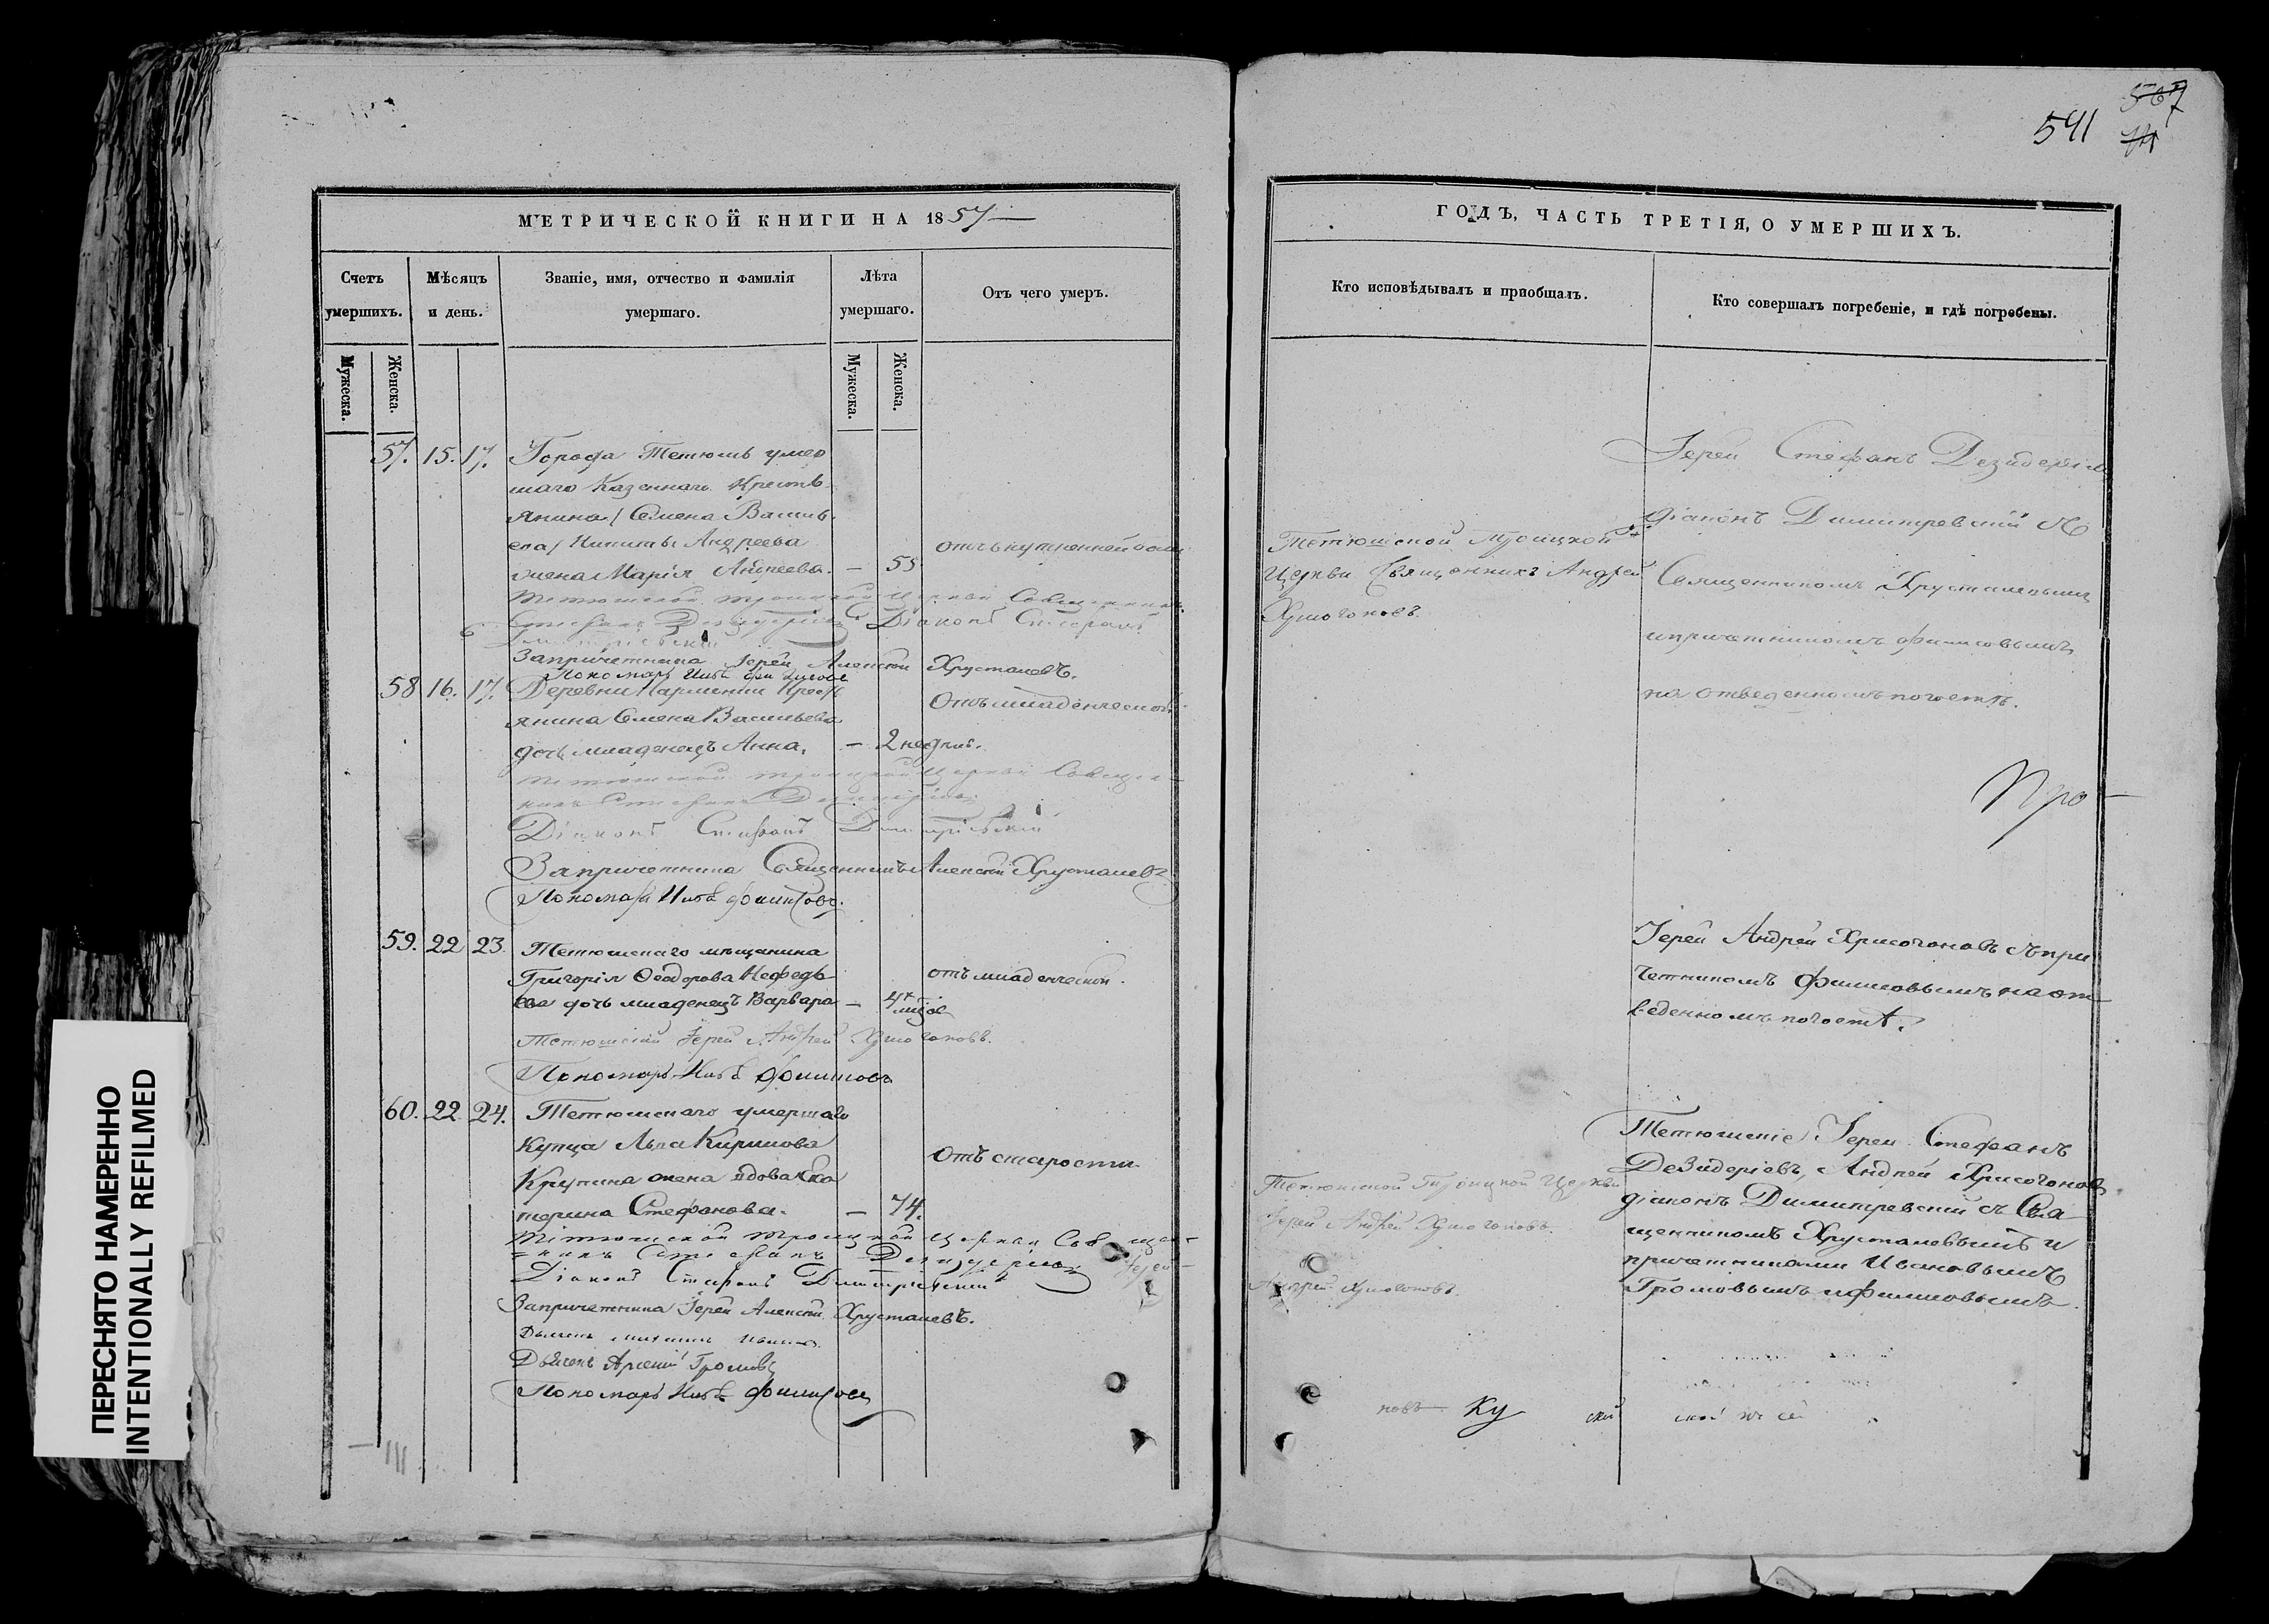 541
567
МЕТРИЧЕСКОЙ КНИГИ НА 1857
Счетъ умершихъ.
Мѣсяцъ и день.
Званіе, имя, отчество и фамилія умершаго.
Лѣта умершаго.
Отъ чего умеръ.
Мужеска.
Женска.
Мужеска.
Женска.
57. 15. 17. Города Тетюшъ умер
шаго Казеннаго Кресть
янина / Семена Василь
ева / Никиты Андреева
жена Марія Андреева. — 55
отъ внутренней
Тетюшской Троицкой Церкви Священникъ
Стефанъ Дезидеріевъ Діаконъ Стефанъ
Димитріевскій
Запричетника Іерей Алексій Хрусталевъ.
Пономарь Филиповъ
58 16. 17. Деревни Кресть
янина Семена Васильева
дочь младенецъ Анна. — 2 недѣль.
Отъ младенческой
Тетюшской Троицкой Церкви Священ-
никъ Стефанъ Дезидеріевъ
Діаконъ Стефанъ Димитріевскій
Запричетника Священникъ Алексій Хрусталевъ
Пономарь Филиповъ.
59. 22 23. Тетюшскаго мѣщанина
Григорія Ѳеодорова Нефедь
ева дочь младенецъ Варвара — 4х мѣсяц
отъ младенческой.
Тетюшскій Іерей Андрей Хрисогоновъ.
Пономарь Филиповъ
60. 22. 24. Тетюшскаго умершаго
Купца Льва Кирилова
Крупина жена вдова Ека
терина Стефанова. — 74.
Отъ старости.
Тетюшской Троицкой Церкви Священ-
никъ Стефанъ Дезидеріевъ
Діаконъ Стефанъ Димитріевскій
Запричетника Іерей Алексій Хрусталевъ.
Дьячекъ Михаилъ Ивановъ
Дьячекъ Арсеній Громовъ
Пономарь Филиповъ
ГОДЪ, ЧАСТЬ ТРЕТІЯ, О УМЕРШИХЪ.
Кто исповѣдывалъ и приобщалъ.
Кто совершалъ погребеніе, и гдѣ погребены.
Тетюшской Троицкой
Церкви Священникъ Андрей
Хрисогоновъ.
Іерей Стефанъ Дезидеріевъ
діаконъ Димитревскій съ
Священникомъ Хрусталевымъ
и причетникомъ Филиповымъ
на отведенномъ погостѣ.
Про—
Іерей Андрей Хрисогоновъ съ при
четникомъ Филиповымъ на от
веденномъ погостѣ.
Тетюшской Троицкой Церкви
Іерей Андрей Хрисогоновъ
Андрей Хрисогоновъ.
Тетюшскіе Іереи Стефанъ
Дезидеріевъ, Андрей Хрисогоновъ
діаконъ Димитревскій съ Свя
щенникомъ Хрусталевымъ и
причетниками Ивановымъ
Громовымъ и Филиповымъ.
новъ— Ку ской
ПЕРЕСНЯТО НАМЕРЕННО
INTENTIONALLY REFILMED